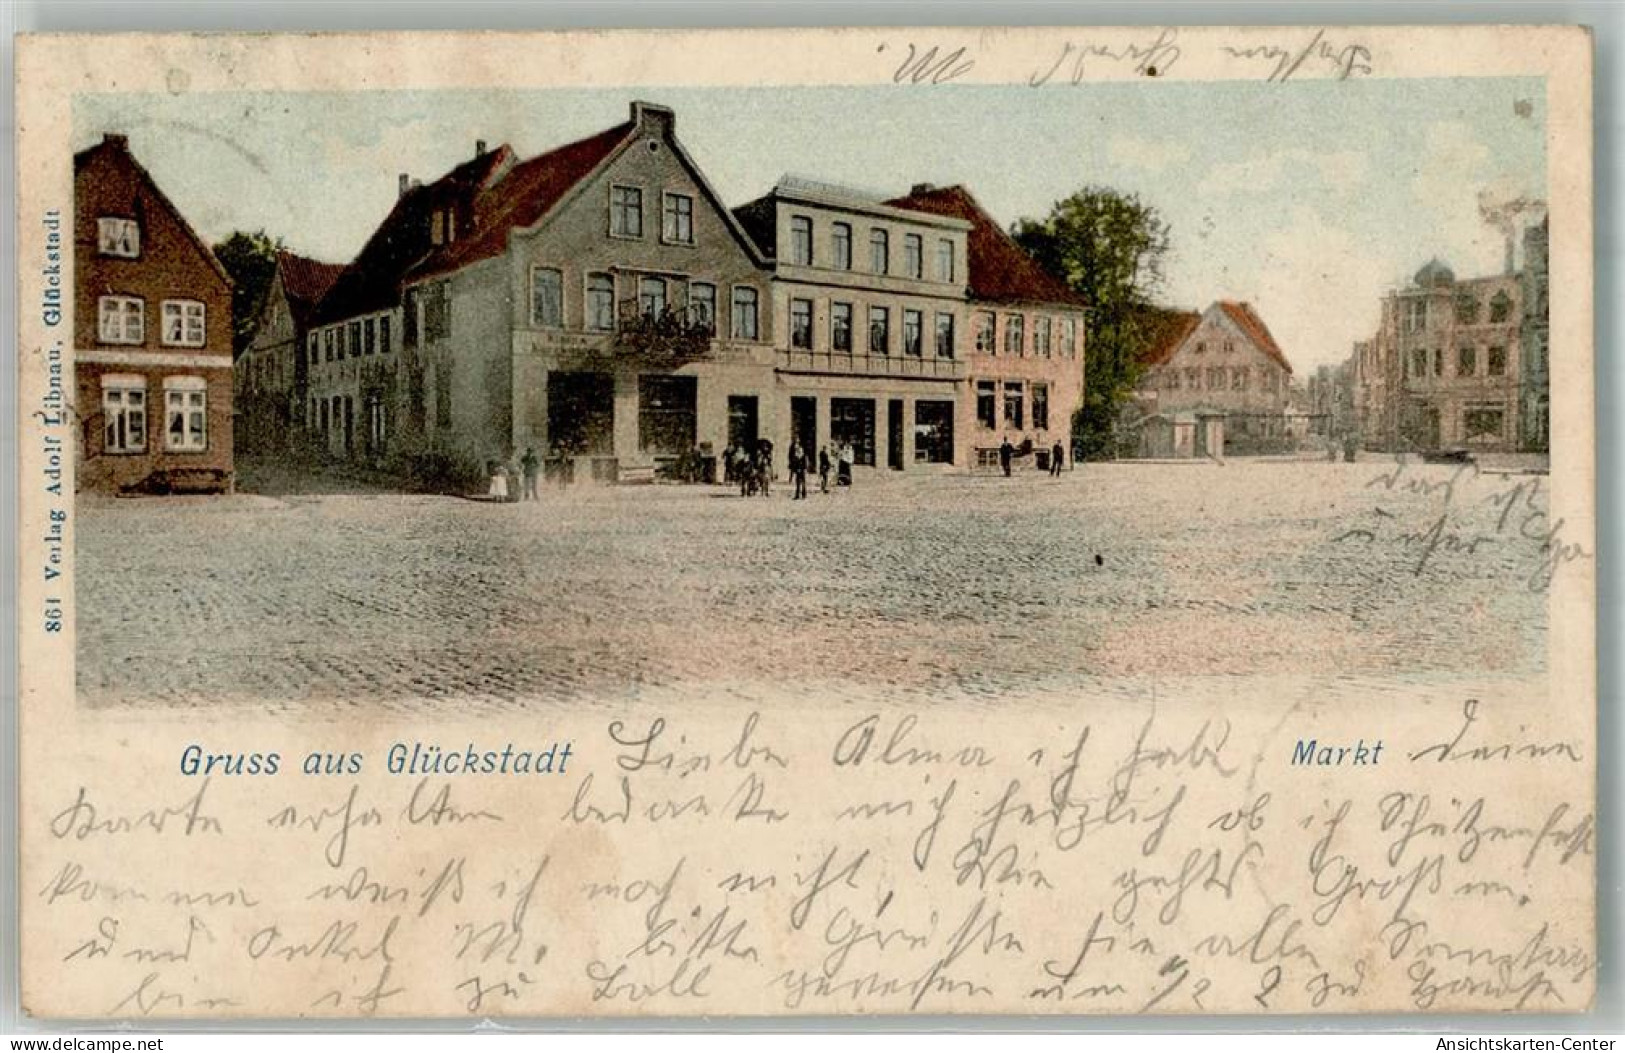 861 Verlag Adolf Libnau, Glückstadt
das ist
unser
Gruss aus Glückstadt
Markt
Liebe Alma ich habe deine
Karte erhalten bedanke mich herzlich ob ich Schützenfest
komme weiß ich noch nicht, Wie gehts Großm.
und Onkel M. bitte Grüße sie alle Sonntag
bin ich zu Ball gewesen um 1/2 2 zu Hause
Ansichtskarten-Center
www.delcampe.net